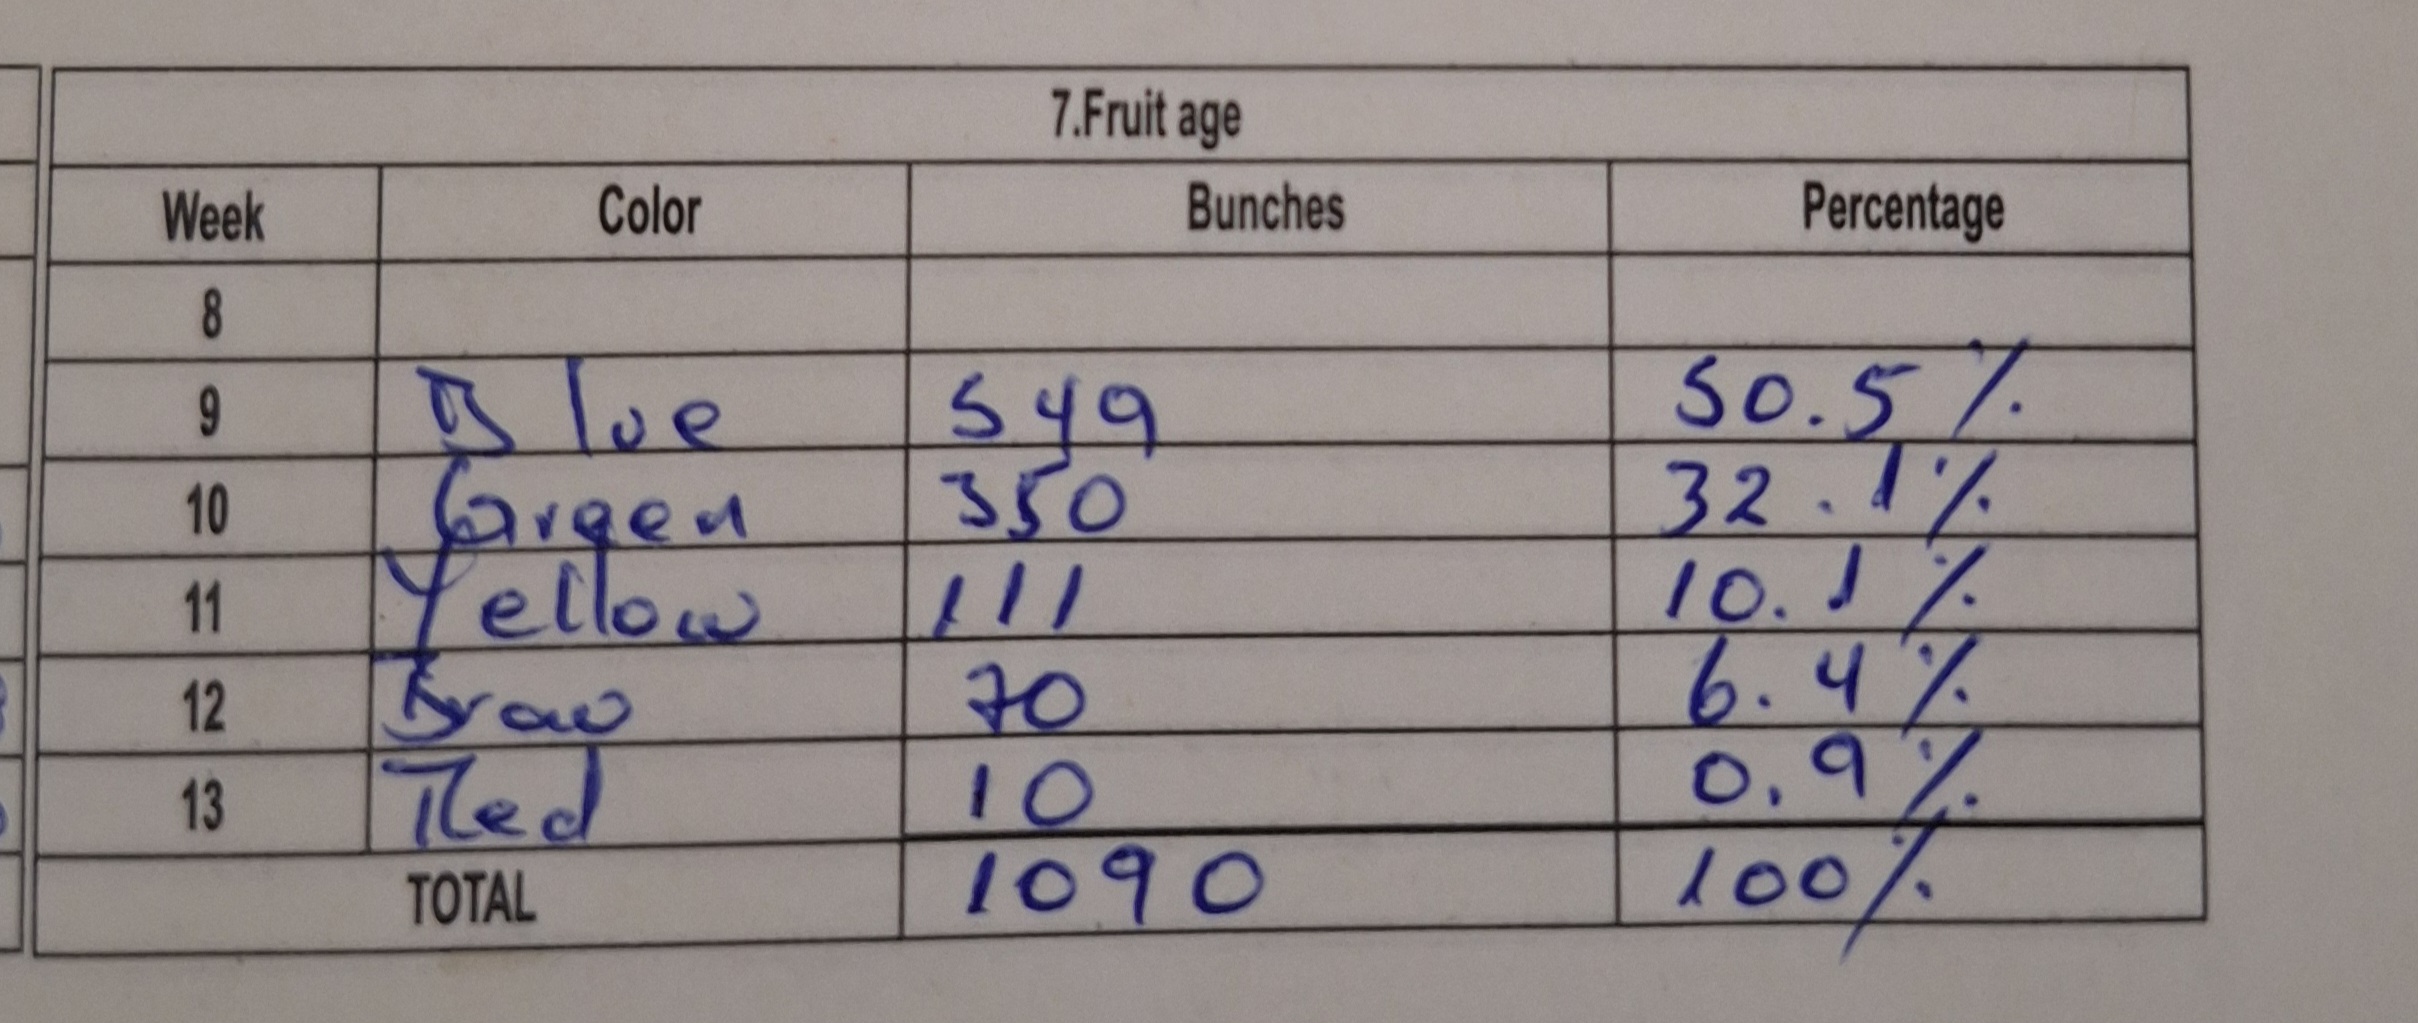 7.Fruit age
Week Color Bunches Percentage
8
9 Blue 549 50.5%
10 Green 350 32.1%
11 Yellow 111 10.1%
12 Brow 70 6.4%
13 Red 10 0.9%
TOTAL 1090 100%